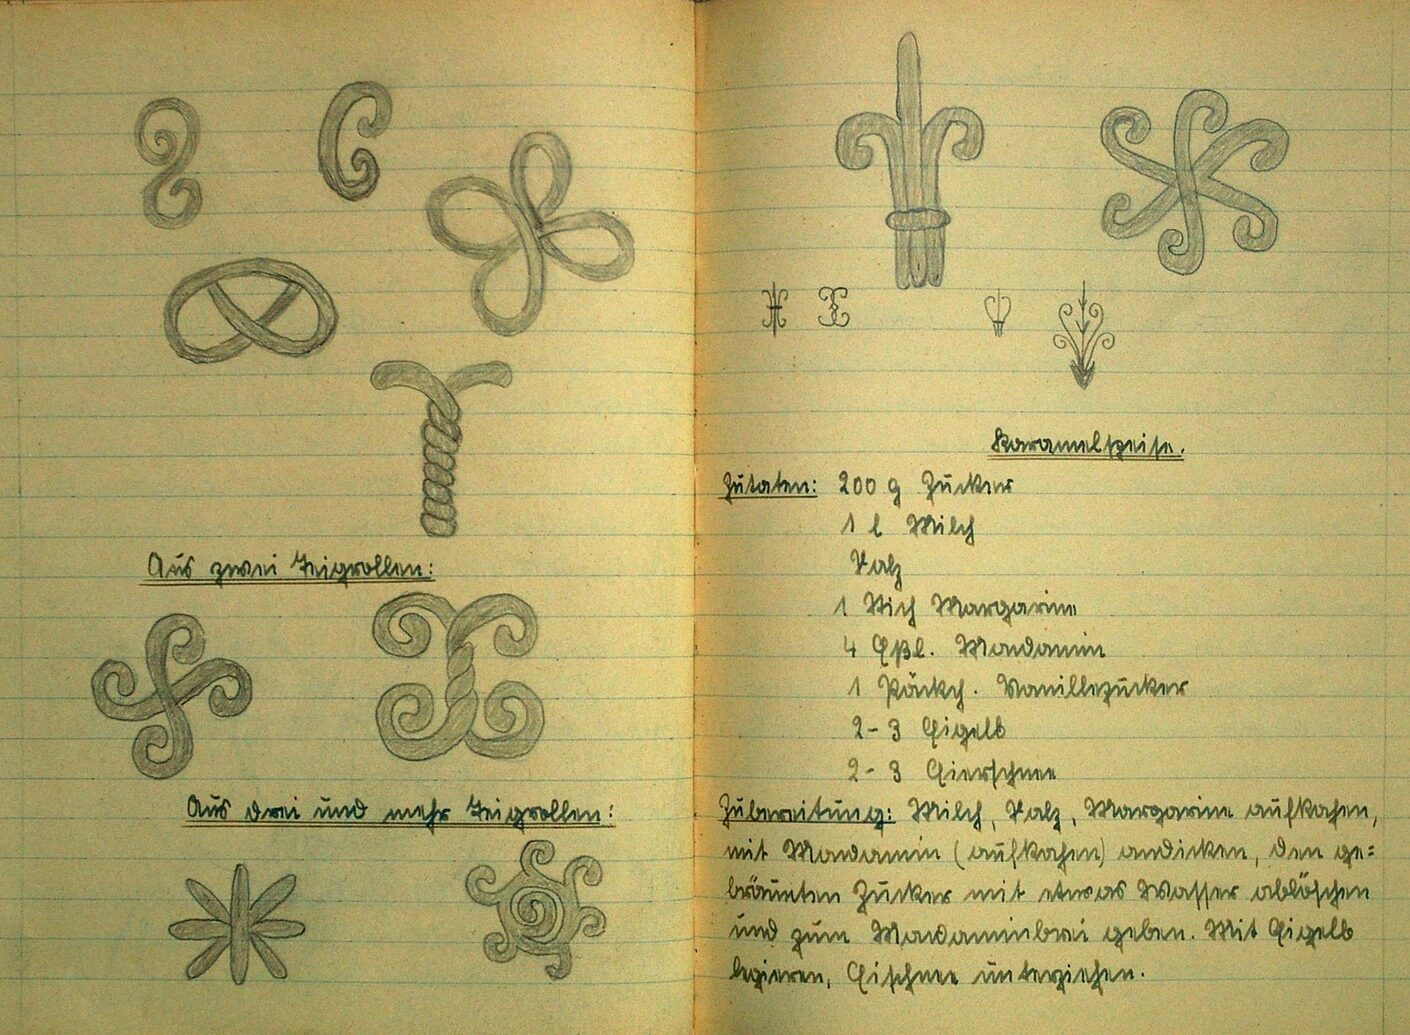 Aus zwei Teigrollen:
Aus drei und mehr Teigrollen:
Karamelspeise.
Zutaten: 200 g Zucker
1 l Milch
Salz
1 Stich Margarine
4 Eßl. Mondamin
1 Päckch. Vanillezucker
2-3 Eigelb
2-3 Eierschnee
Zubereitung: Milch, Salz, Margarine aufkochen,
mit Mondamin (aufkochen) andicken, den ge=
bräunten Zucker mit etwas Wasser ablöschen
und zum Mondaminbrei geben. Mit Eigelb
legieren, Eischnee unterziehen.